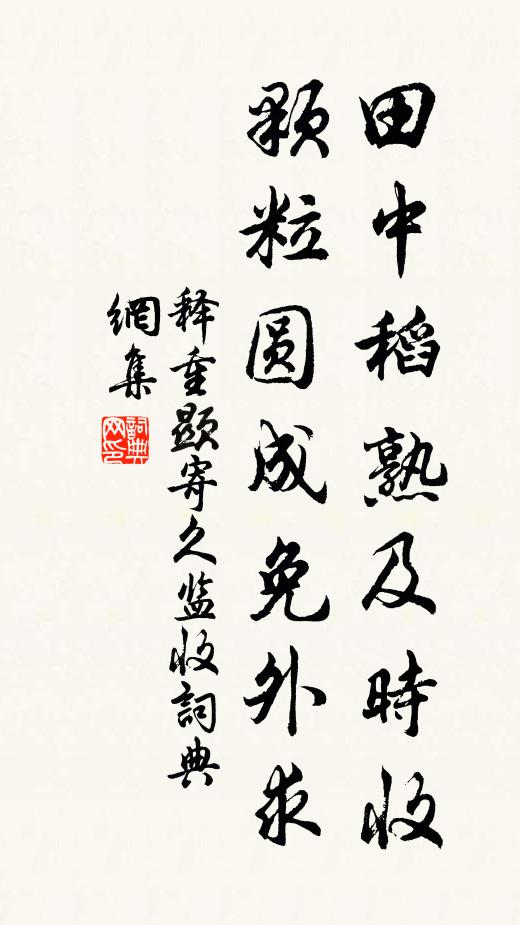 田中稻熟及時收
顆粒圆成免外求
释重顕寄久监收詞典
網集
詞典
网印